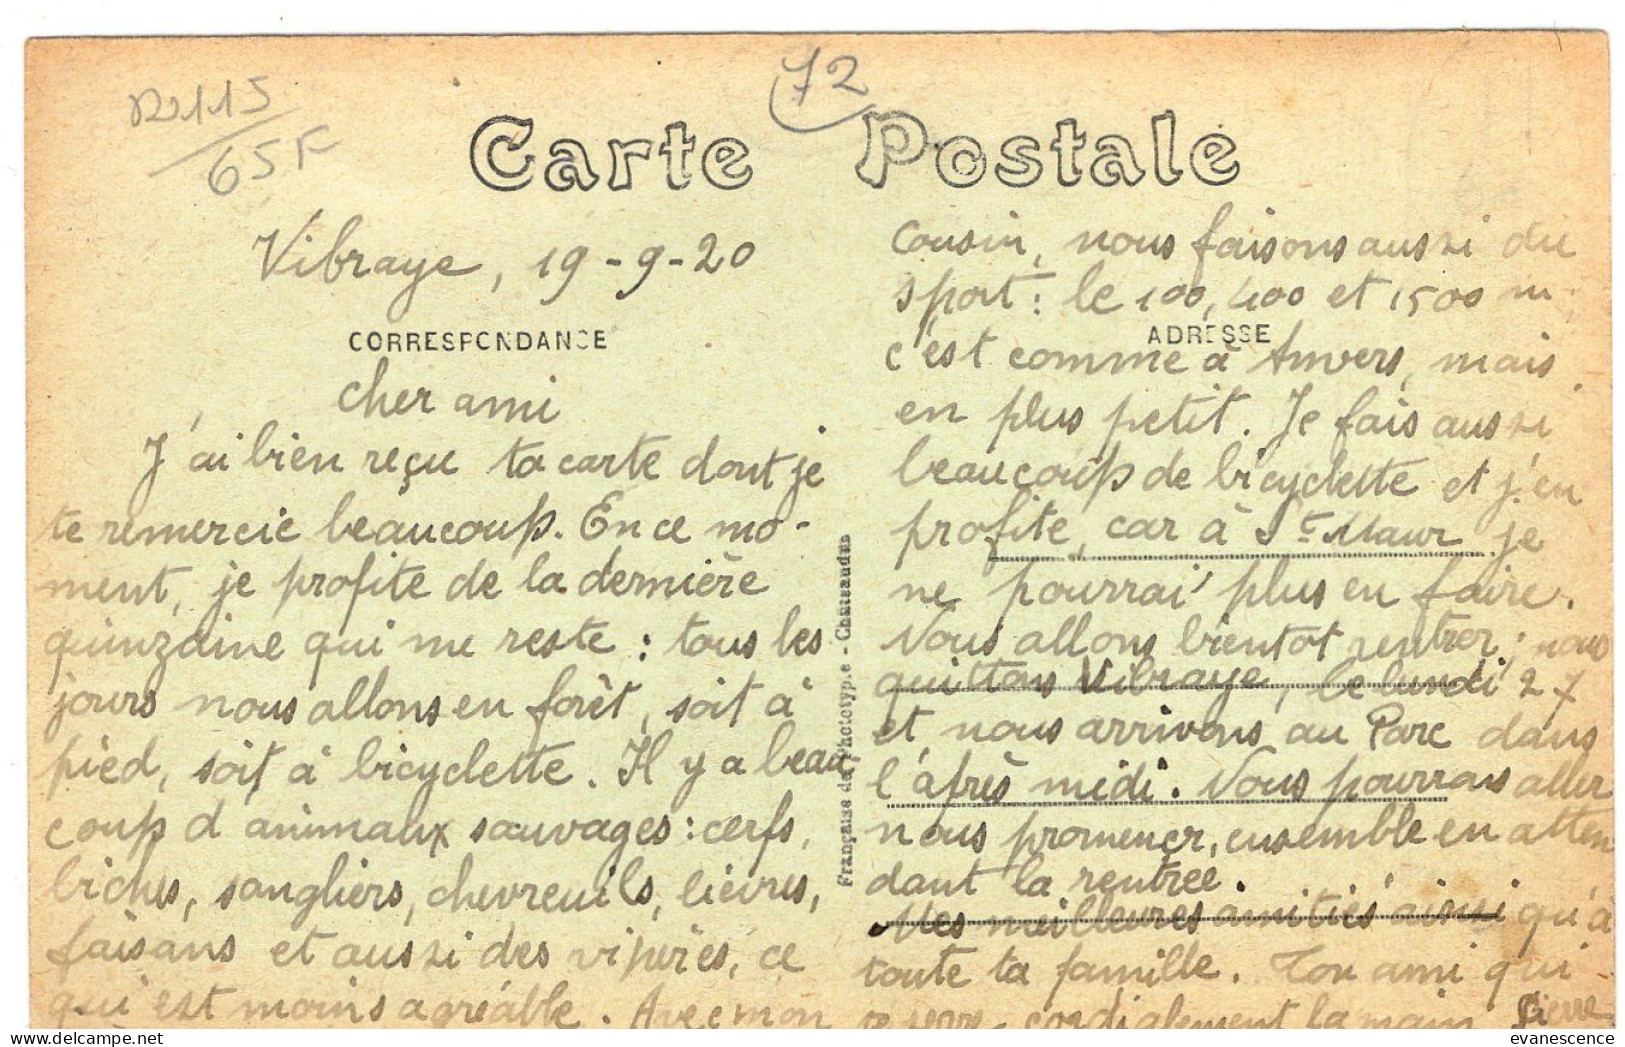 72
65F
Carte Postale
Vibraye, 19-9-20
CORRESPONDANCE
cher ami
J'ai bien reçu ta carte dont je
te remercie beaucoup. En ce mo-
ment, je profite de la dernière
quinzaine qui me reste : tous les
jours nous allons en forêt, soit à
pied, soit à bicyclette. Il y a beau-
coup d'animaux sauvages : cerfs,
biches, sangliers, chevreuils, lièvres,
faisans et aussi des vipères, ce
qui est moins agréable. Avec mon
Française de Phototypie - Châteaudun
cousin, nous faisons aussi du
sport : le 100, 400 et 1500 m;
ADRESSE
c'est comme à Anvers, mais
en plus petit. Je fais aussi
beaucoup de bicyclette et j'en
profite, car à St Maur je
ne pourrai plus en faire.
Nous allons bientôt rentrer; nous
quittons Vibraye, le lundi 27
et nous arrivons au Parc dans
l'après midi. Nous pourrons aller
nous promener, ensemble en atten
dant la rentrée.
Mes meilleures amitiés ainsi qu'à
toute ta famille. Ton ami qui
te serre cordialement la main Pierre
evanescence